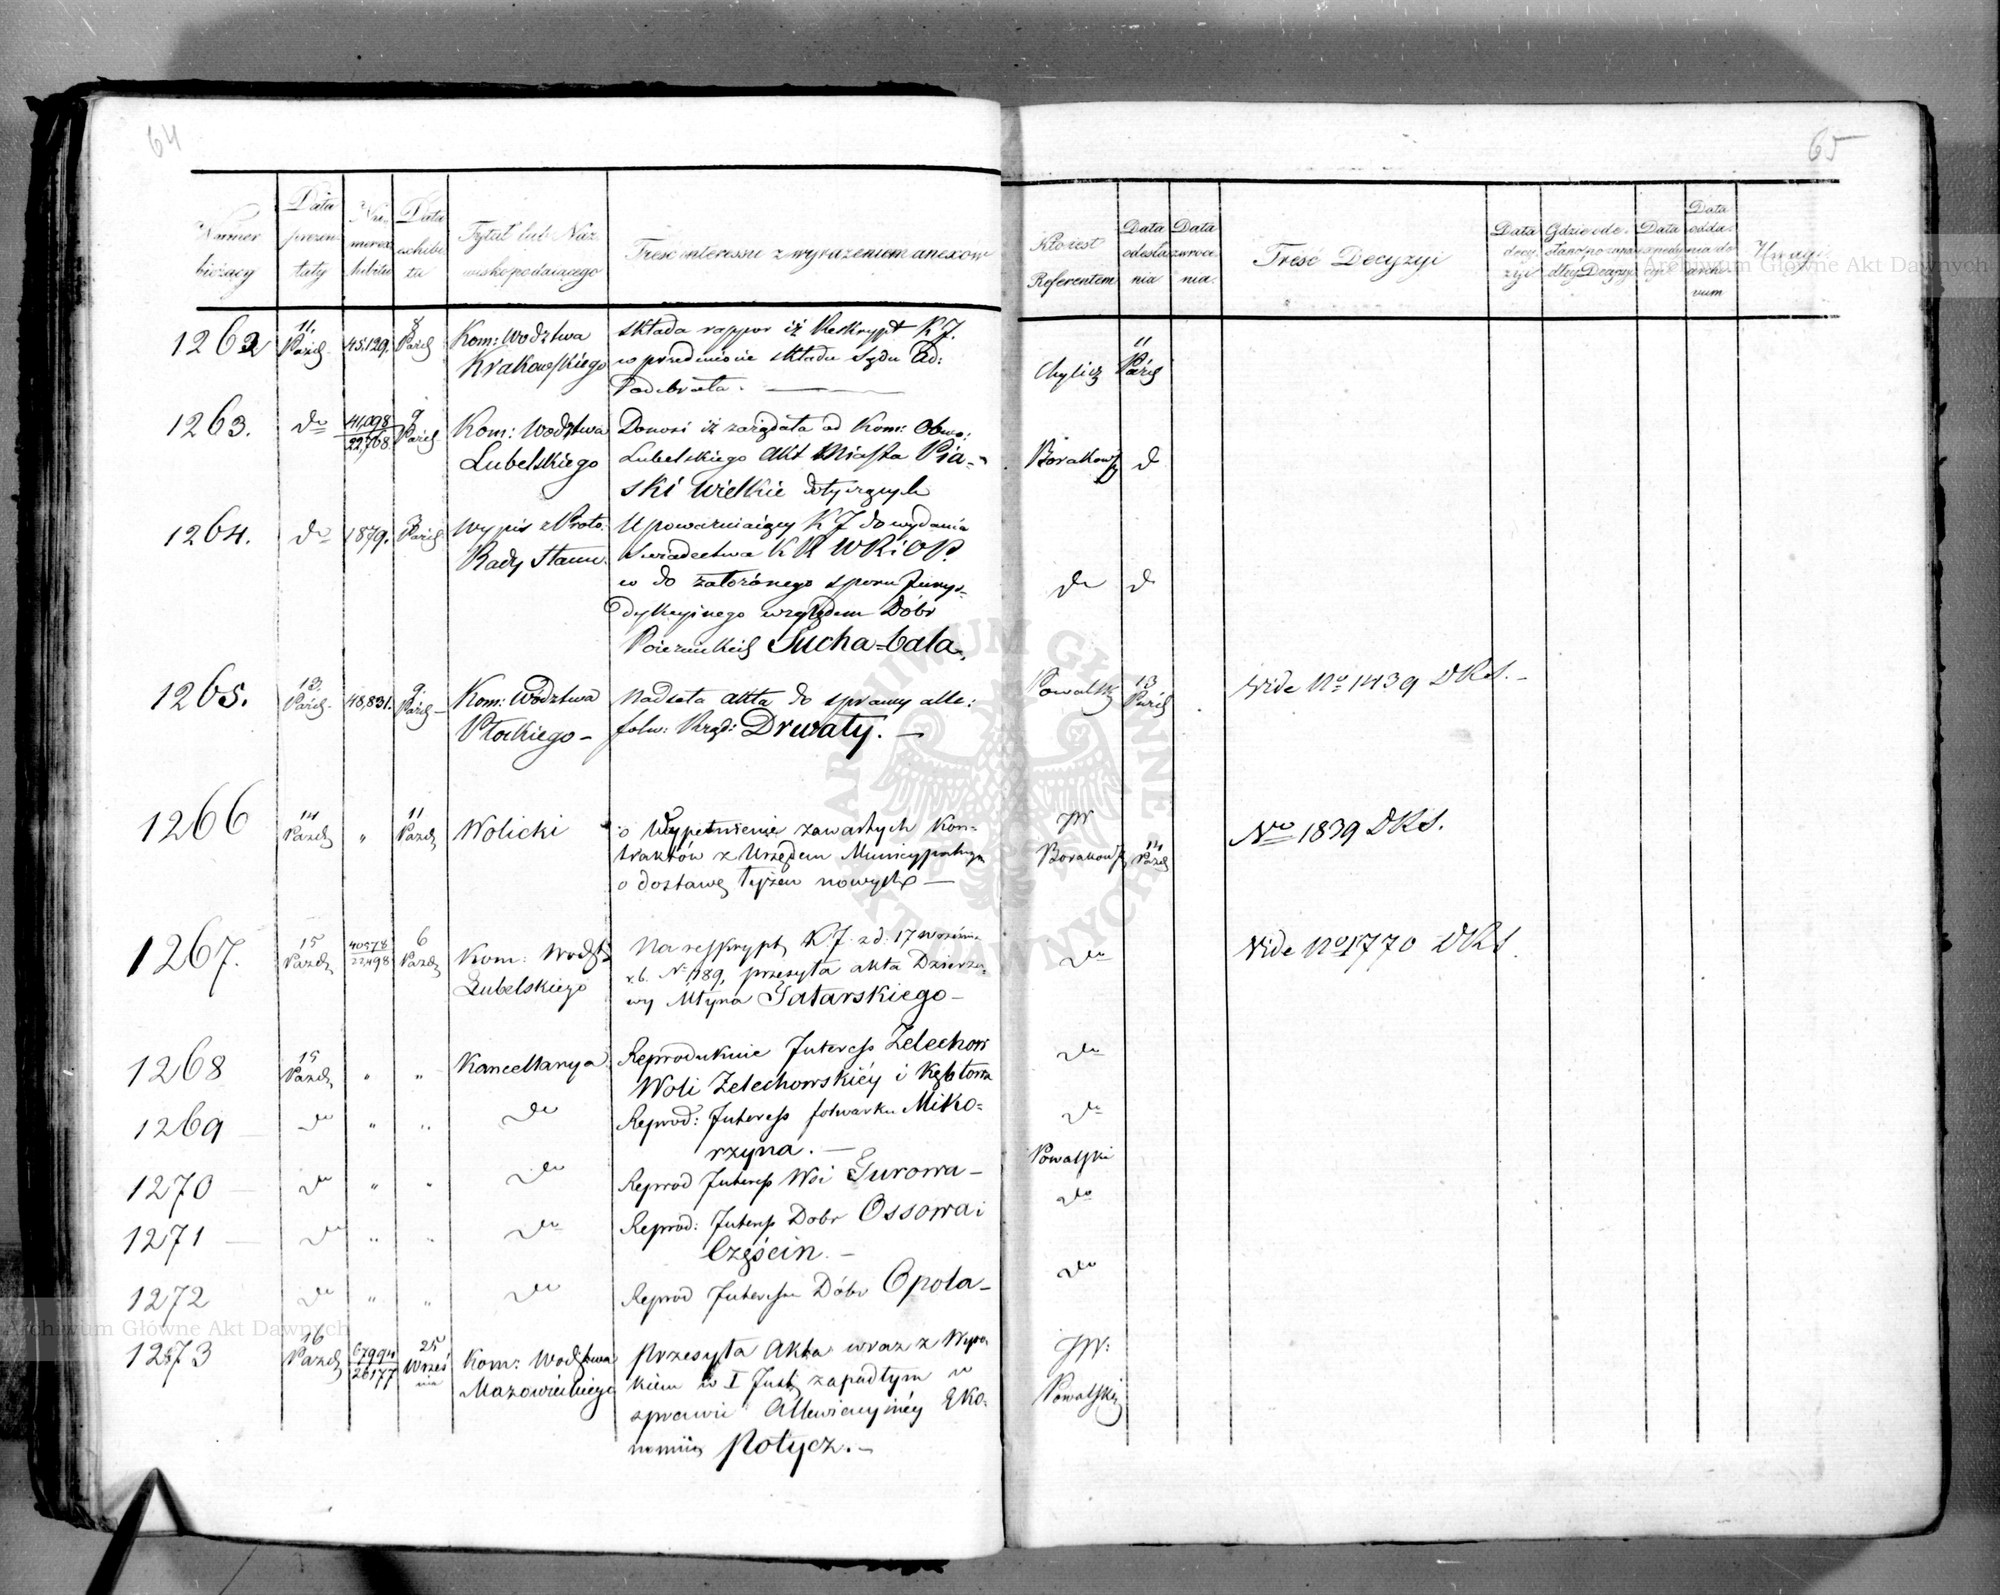 64
65
Numer bieżący
Data prezentaty
Data exhibita
Tytuł lub Nazwisko podaiącego
Treść interessu z wyrażeniem anexów
Kto iest Referentem
Data odesłania
Data zwrocenia
Treść Decyzyi
Data decyzyi
Data expedycyi
Data oddania do archivum
Uwagi
1262 11. Paźd. 45.129. 8 Paźd Kom: Wodztwa
Krakowskiego
składa rappor iż Reskrypt K J.
w przedmiocie składu Sądu Ad:
odebrała. —
Chylicz 11 Paźd
1263. do 41,098 22,768. 9 Paźd Kom: Wodztwa
Lubelskiego
Donosi iż zażądała od Kom: Obwo:
Lubelskiego Akt Miasta Pia-
ski Wielkie dotyczących
Borakows d
1264. do 1879. Paźd Wypis z Proto.
Rady Stanu.
Upoważniaiący K J do wydania
Swiadectwa K R W R i O P.
w do założonego sporu Jurys-
dykcyinego względem Dóbr
Poiezuickich Sucha-bala.
do d
1265. 13 Paźd. 48,831. 9. Paźd Kom: Wództwa
Płockiego –
Nadseła akta do sprawy alle:
folw: Rząd: Drwały. —
Powalsk 13 Paźd
Vide No 1439 DKS. -
1266 14 Paźd " 11 Paźd Wolicki
o Wypełnienie zawartych Kon-
traktów z Urzędem Municypalnym
o dostawę łyżew nowych —
JW
Borakows 14 Paźd
No 1839 DKS.
1267. 15 Paźd 40578 22,498 6 Paźd Kom: Wodz
Lubelskiego
Na resskrypt K J. z d. 17 wrześni
r. b. No 189, przesyła akta Dzierża-
wy Młyna Tatarskiego –
do
Vide No 1770 DKS
1268 15 Paźd " " Kancellarya
Reprodukuie Interess Zelechow
Woli Zelechowskiéy i Kębłowa
do
1269 do " " do
Reprod: Interess folwarku Miko-
rzyna. —
do
1270 do " " do
Reprod Interess Wsi Gurowa –
Powalski
1271 do " " do
Reprod: Interess Dobr Ossowa i
Częścin. –
do
1272 do " " do
Reprod Interessu Dóbr Opola –
do
1273 16 Paźd 26177 25 Wrześ
nia
Kom: Wodztwa
Mazowieckiego
przesyła Akta wraz z Wyro
kiem w I Inst zapadłym w
sprawie Allewiacyinéy Eko-
nomii Potycz. –
JW:
Powalski
Archiwum Główne Akt Dawnych
Archiwum Główne Akt Dawnych
ARCHIWUM GŁÓWNE AKT DAWNYCH